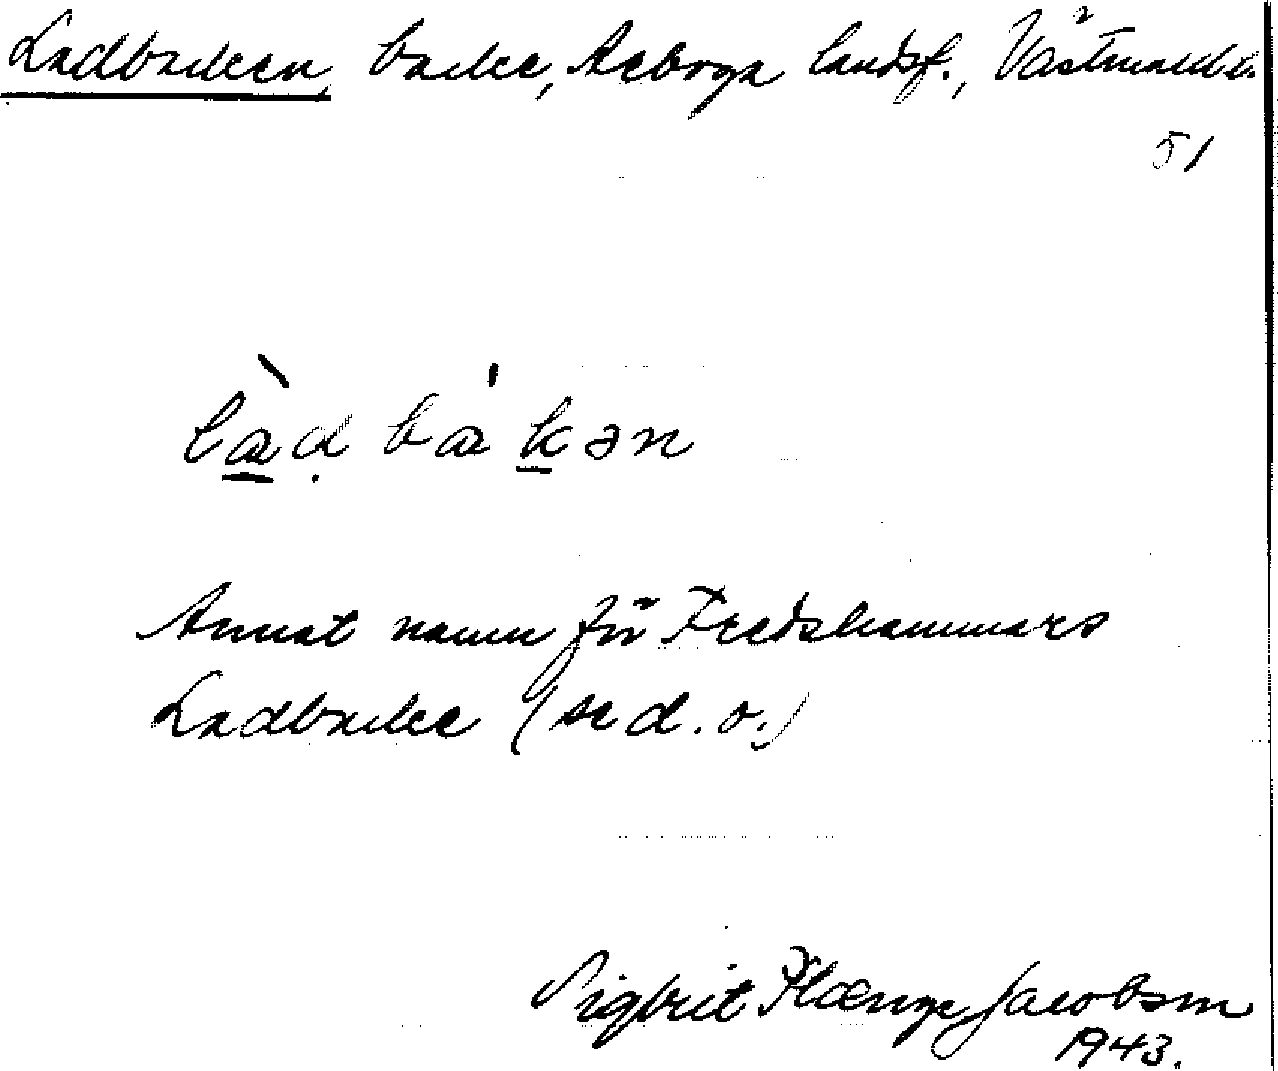 Ladbacken, backe, Arboga landsf., Västmanl. l.
51
làdbákən
Annat namn för Fredshammars
Ladbacke (se d. o.)
Sigbrit Plænge Jacobson
1943.